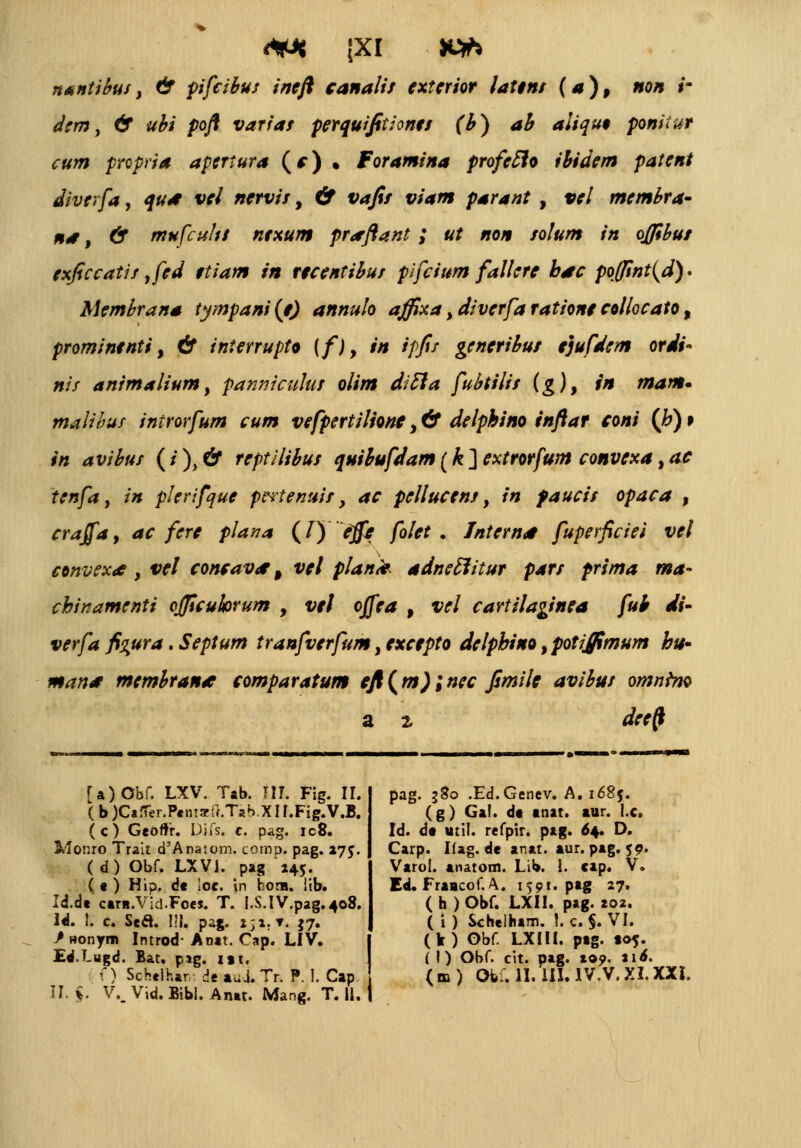 [XI
nantibus, & piſcibus ineſt canalis exterior latens (a), non i-
dem, & ubi poſt varias perquiſitiones (b) ab aliquo ponitur
cum propria apertura (c). Foramina profecto ibidem patent
diverſa, quæ vel nervis, & vaſis viam parant, vel membra-
næ, & muſculis nexum præſtant; ut non solum in oſſibus
exſiccatis, ſed etiam in recentibus piſcium fallere hæc poſſint(d).
Membrana tympani (e) annulo affixa, diverſa ratione collocato,
prominenti, & interrupto (f), in ipſis generibus ejuſdem ordi-
nis animalium, panniculus olim dicta ſubtilis (g), in mam-
malibus introrſum cum veſpertilione, & delphino inſtar coni (h),
in avibus (i), & reptilibus quibuſdam (k] extrorſum convexa, ac
tenſa, in pleriſque pertenuis, ac pellucens, in paucis opaca,
craſſa, ac fere plana (l) eſſe ſolet. Internæ ſuperficiei vel
convexæ, vel concavæ, vel planæ adnectitur pars prima ma-
chinamenti oſſiculorum, vel oſſea, vel cartilaginea ſub di-
verſa figura. Septum tranſverſum, excepto delphino, potiſſimum hu-
manæ membranæ comparatum eſt (m); nec ſimile avibus omnino
a 2 deeſt
[a) Obſ. LXV. Tab. III. Fig. II.
(b) Caſſer. Pentæſt. Tab. XII. Fig. V. B.
(c) Geoffr. Diſs. c. pag. 108.
Monro Trait d'Anatom. comp. pag. 275.
(d) Obſ. LXVI. pag 245.
(e) Hip. de loc. in hom. lib.
Id. de carn. Vid. Foes. T. I. S. IV. pag. 408.
Id. l. c. Sect. III. pag. 251. v. 37.
Anonym Introd. Anat. Cap. LIV.
Ed. Lugd. Bat. pag. 121.
f) Schelham de aud. Tr. P. I. Cap.
II. §. V. Vid. Bibl. Anat. Mang. T. II.
pag. 380. Ed. Genev. A. 1685.
(g) Gal. de anat. aur. l. c.
Id. de util. reſpir. pag. 64. D.
Carp. Iſag. de anat. aur. pag. 59.
Varol. anatom. Lib. I. cap. V.
Ed. Francof. A. 1591. pag 27.
(h) Obſ. LXII. pag. 202.
(i) Schelham. l. c. §. VI.
(k) Obſ. LXIII. pag. 205.
(l) Obſ. cit. pag. 209. 216.
(m) Obſ. II. III. IV. V. XI. XXI.